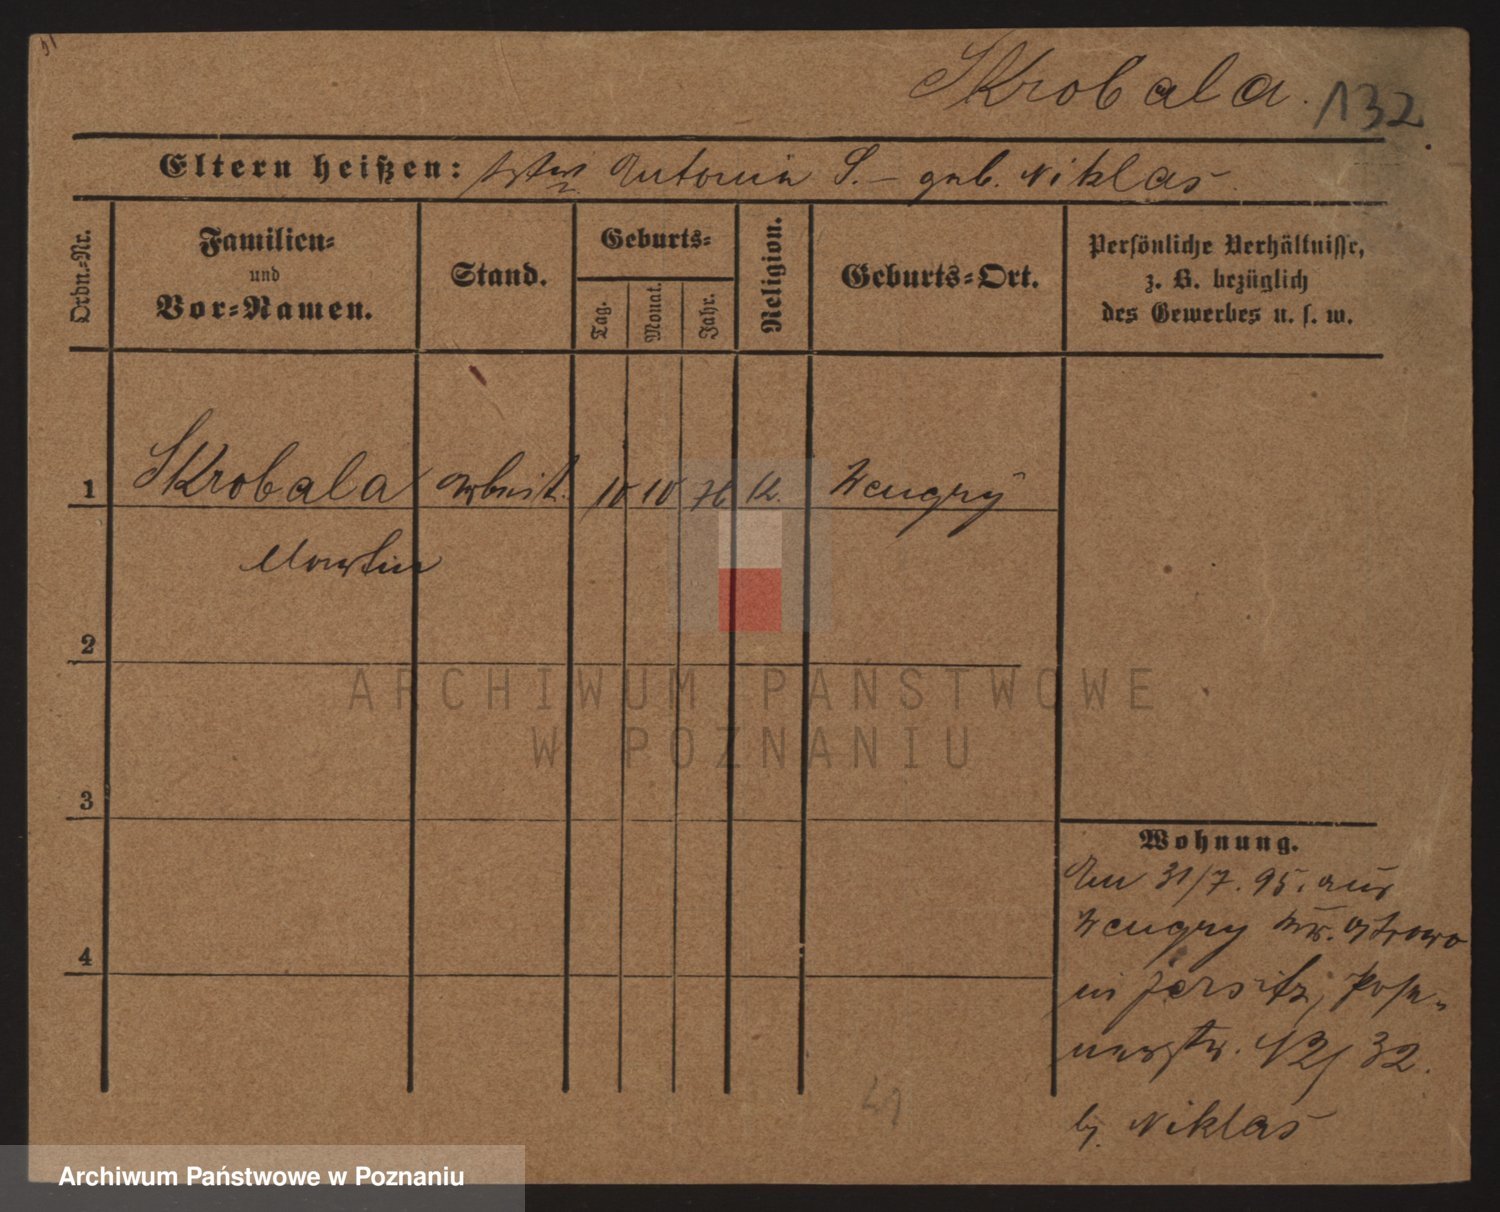 Skrobala. 132
Eltern heißen: Antonin S. – geb. Niklas
Ordn.-Nr.
Familien-
und
Vor-Namen.
Stand.
Geburts-
Tag.
Monat.
Jahr.
Religion.
Geburts-Ort.
Persönliche Verhältnisse,
z. B. bezüglich
des Gewerbes u. s. w.
1 Skrobala Arbeit. 10 10 76 k. Wengry
Martin
2
3
4
ARCHIWUM PAŃSTWOWE
W POZNANIU
Wohnung.
Am 31/7. 95. aus
Wengry Kr. Ostrowo
in Jersitz, Pose-
nerstr. 12/32.
by. Niklas
Archiwum Państwowe w Poznaniu